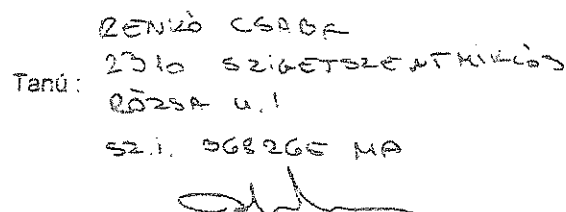 RENKÓ CSABA
Tanú: 2310 SZIGETSZENTMIKLÓS
RÓZSA u. 1
SZ.i. 968265 MA